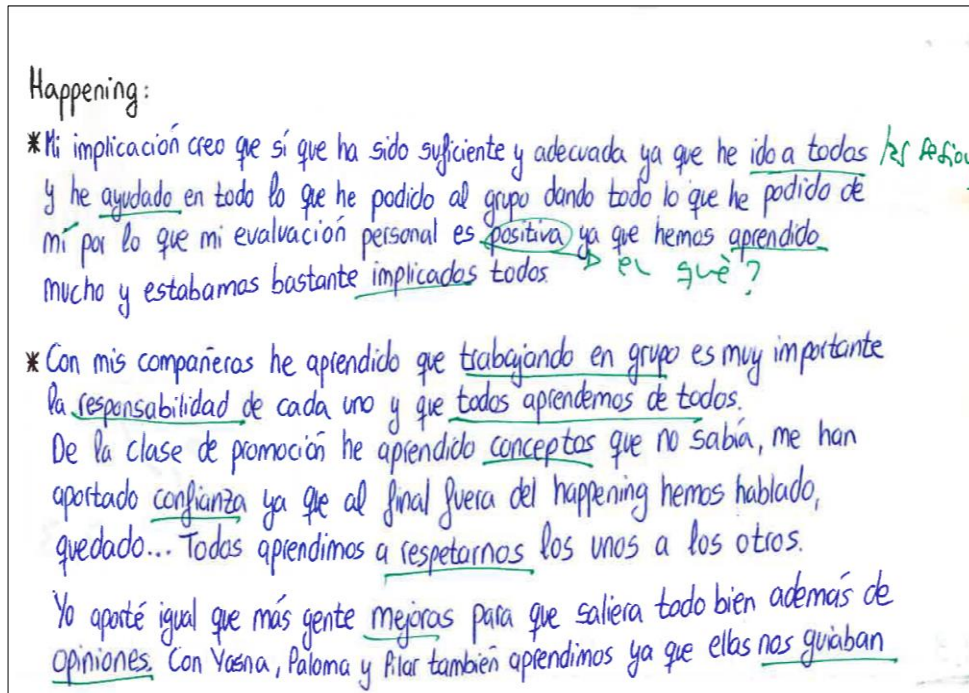 Happening:
* Mi implicación creo que sí que ha sido suficiente y adecuada ya que he ido a todas las
y he ayudado en todo lo que he podido al grupo dando todo lo que he podido de
mí por lo que mi evaluación personal es positiva ya que hemos aprendido
el què?
mucho y estabamos bastante implicados todos.
* Con mis compañeros he aprendido que trabajando en grupo es muy importante
la responsabilidad de cada uno y que todos aprendemos de todos.
De la clase de promoción he aprendido conceptos que no sabía, me han
aportado confianza ya que al final fuera del happening hemos hablado,
quedado... Todos aprendimos a respetarnos los unos a los otros.
Yo aporté igual que más gente mejoras para que saliera todo bien además de
opiniones. Con Yasna, Paloma y Pilar también aprendimos ya que ellas nos guiaban